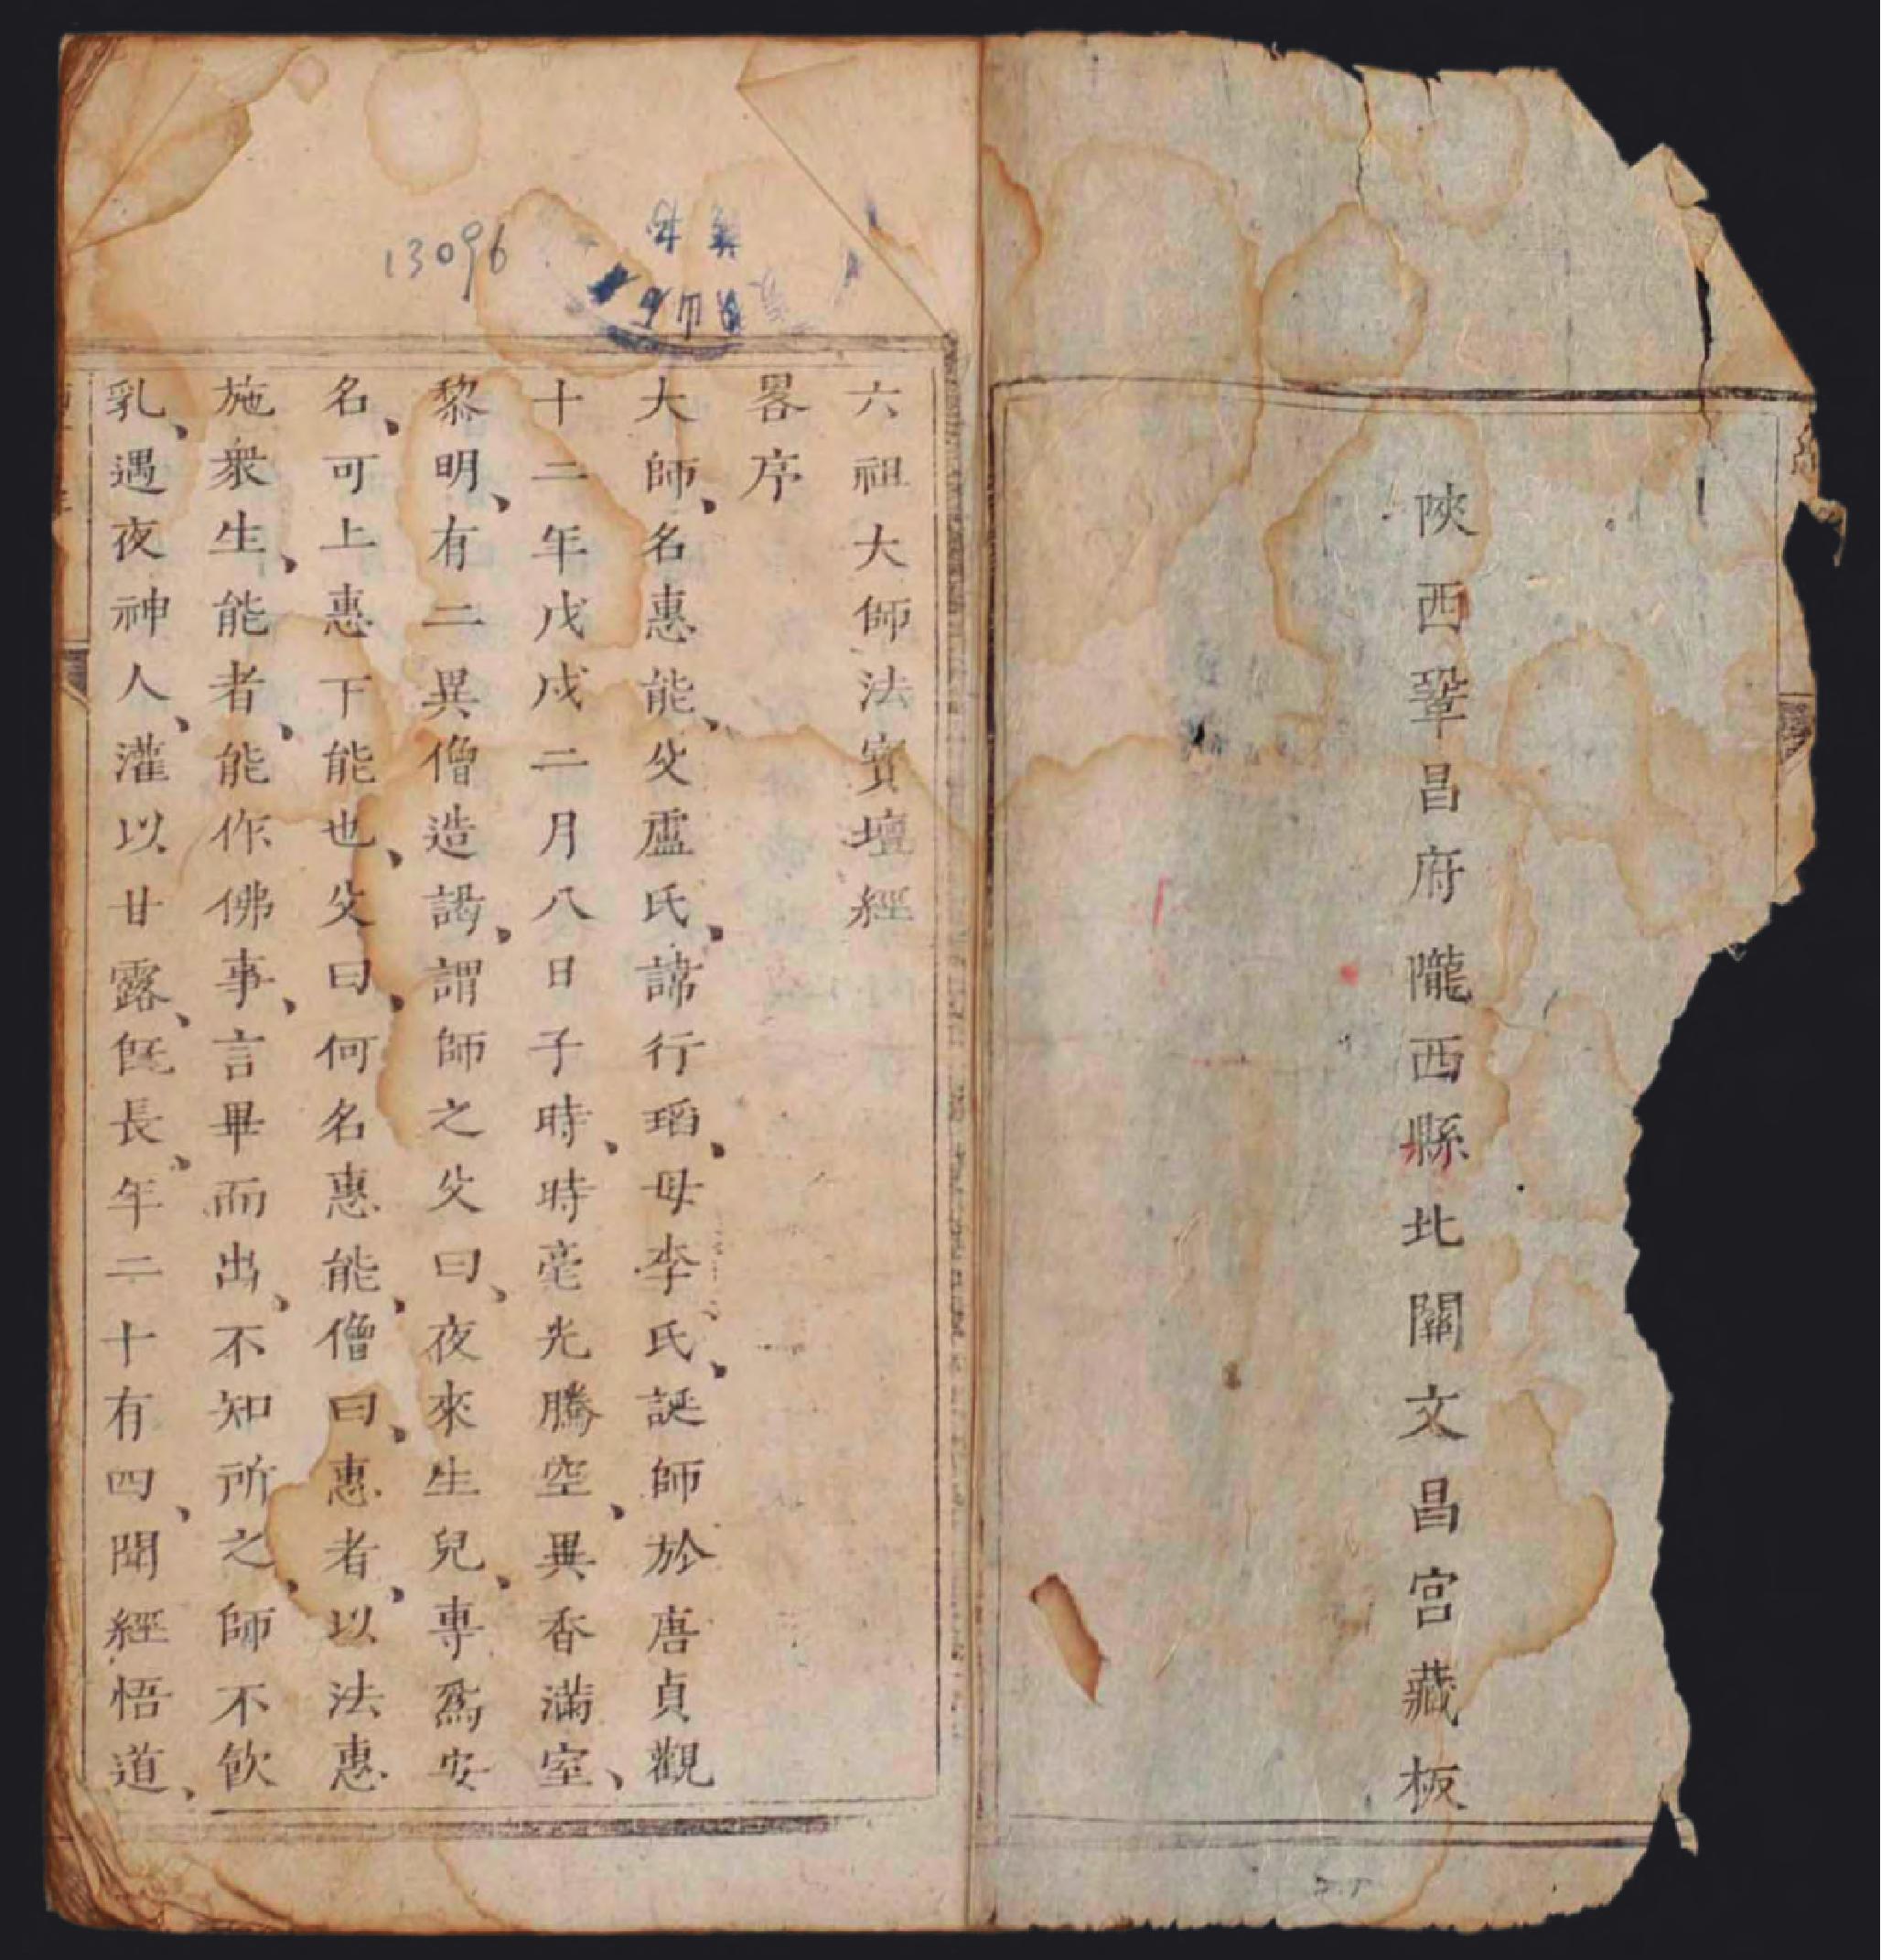 陝西鞏昌府隴西縣北關文昌宮藏板
13096
六祖大師法寳壇經
畧序
大師、名惠能、父盧氏、諱行瑫、母李氏、誕師於唐貞觀
十二年戊戌二月八日子時、時毫光騰空、異香滿室、
黎明、有二異僧造謁、謂師之父曰、夜來生兒、專爲安
名、可上惠下能也、父曰、何名惠能、僧曰、惠者、以法惠
施衆生、能者、能作佛事、言畢而出、不知所之、師不飮
乳、遇夜神人、灌以甘露、旣長、年二十有四、聞經悟道、